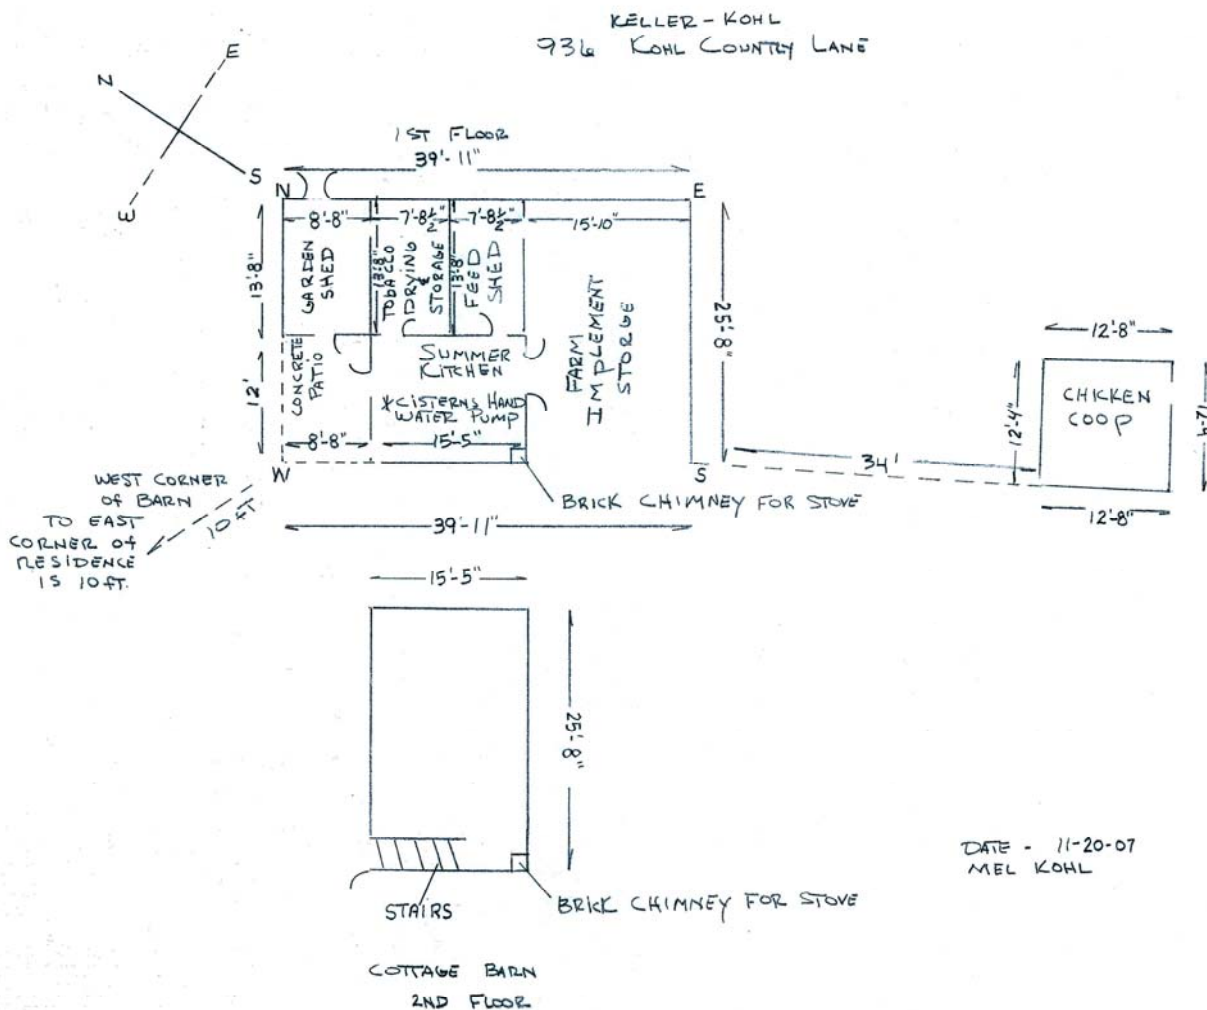 KELLER-KOHL
936 KOHL COUNTRY LANE
N
E
S
W
1ST FLOOR
39'-11"
N
E
8'-8"
7'-8½"
7'-8½"
15'-10"
13'-8"
GARDEN
SHED
13'-8"
TOBACCO
DRYING
&
STORAGE
13'-8"
FEED
SHED
FARM
IMPLEMENT
STORGE
25'-8"
12'
CONCRETE
PATIO
SUMMER
KITCHEN
*CISTERNS HAND
WATER PUMP
8'-8"
15'-5"
W
S
34'
12'-8"
12'-4"
CHICKEN
COOP
12'-4
12'-8"
WEST CORNER
OF BARN
TO EAST
CORNER OF
RESIDENCE
IS 10 FT.
10 FT.
BRICK CHIMNEY FOR STOVE
39'-11"
15'-5"
25'-8"
STAIRS
BRICK CHIMNEY FOR STOVE
COTTAGE BARN
2ND FLOOR
DATE - 11-20-07
MEL KOHL